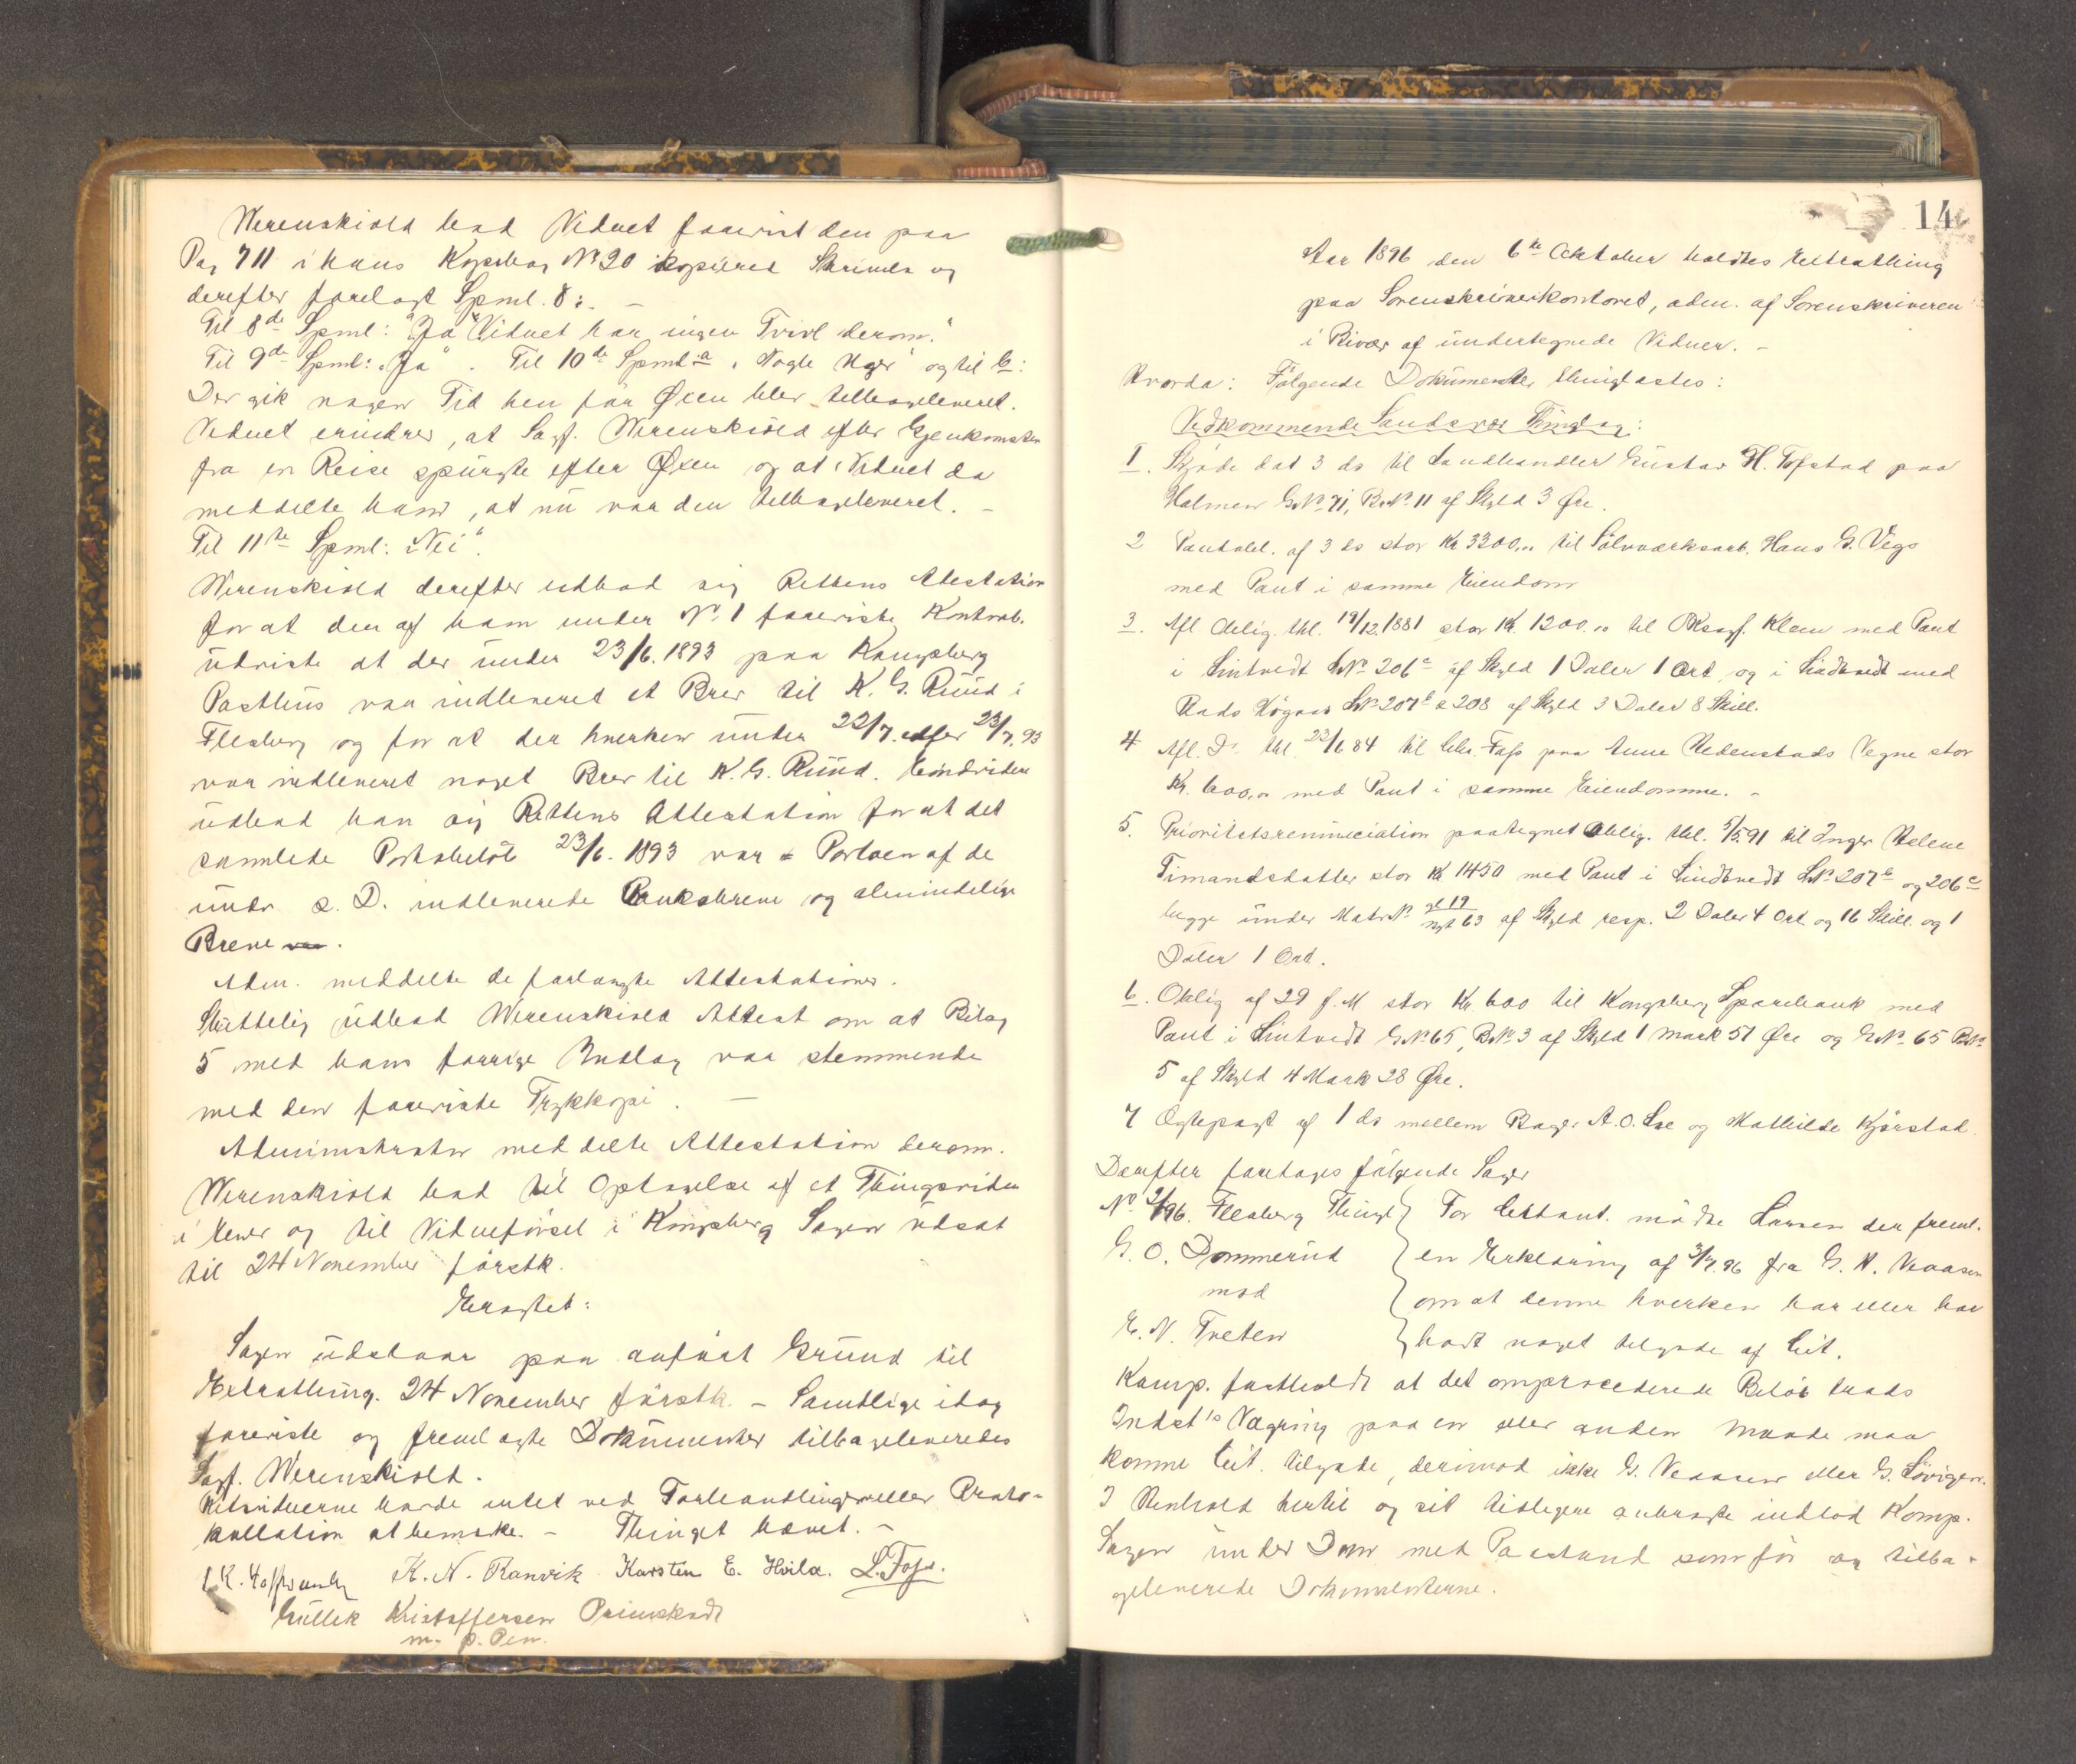 Werenskiold bad Vidnet forevist den paa
Pag 711 i hans Kopibog No 20 kopieret Skrivelse og
derefter forelagt Spml. 8:. –
Til 8de Spml: "Ja" "Vidnet har ingen Tvivl derom."
Til 9de Spml: "Ja". Til 10de Spml: a "Nogle Uger" og til b:
Der gik nogen Tid hen før Øxen blev tilbageleveret.
Vidnet erindrer, at Sagf. Werenskiold efter Gjenkomsten
fra en Reise spurgte efter Øxen og at Vidnet da
meddelte ham, at nu var den tilbageleveret. –
Til 11te Spml: "Nei".
Werenskiold derefter udbad sig Rettens Atestation
for at den af ham under No 1 foreviste Kontrab.
udviste at der under 23/6. 1893 paa Kongsberg
Posthus var indleveret et Brev til K. G. Ruud i
Flesberg og for at der hverken under 22/7. eller 23/7. 93
var indleveret noget Brev til K. G. Ruud. Endvidere
udbad han sig Rettens Attestation for at det
samlede Portobeløb 23/6. 1893 var = Portoen af de
under s. D. indleverede Breve og almindelige
Breve.
Adm. meddelte de forlangte Attestationer.
Sluttelig udbad Werenskiold Attest om at Bilag
5 med hans forrige Indlæg var stemmende
med den foreviste Trykkopi. –
Administrator meddelte Attestation derom.
Werenskiold bad til Optagelse af et Thingsvidne
i Eker og til Vidneførsel i Kongsberg Sagen udsat
til 24 November førstk.
Eragtet:
Sagen udstaar paa anført Grund til
Extrathing. 24 November førstk. – Samtlige idag
foreviste og fremlagte Dokumenter tilbageleveredes
Sagf. Werenskiold.
Retsvidnerne havde intet ved Forhandlingen eller Proto-
kollation at bemærke. – Thinget hævet. –
K. N. Ranvik Karsten E. Hvila. L. Foss.
Gullik Kristoffersen
m. p. Pen.
14
Aar 1896 den 6te Oktober holdtes Extrathing
paa Sorenskriverkontoret, adm. af Sorenskriveren
i Bivær af undertegnede Vidner. –
Hvorda: Følgende Dokumenter thinglæstes:
Vedkommende Sandsvær Thinglag:
1. Skjøde dat 3 ds til Landhandler Gustav H. Tofstad paa
Holmen G.No 71, B.No 11 af Skyld 3 Øre.
2 Pantobl. af 3 ds stor Kr 3300,00 til Sølvværksarb. Hans G. Vego
med Pant i samme Eiendom
3. Afl Oblig. thl. 19/12. 1881 stor Kr. 1200.00 til ORsagf. Klem med Pant
i Lintvedt LNo 206c af Skyld 1 Daler 1 Ort og i Lindtvedt med
LNo 207b & 208 af Skyld 3 Daler 8 Skill.
4 Afl. Do. thl 23/6 84 til Chr. Foss paa Anne Hedenstads Vegne stor
Kr. 600,00 med Pant i samme Eiendomme. –
5. Prioritetsrenunciation paategnet Oblig. thl. 5/5.91 til Inger Helene
Timandsdatter stor Kr 1450 med Pant i Lindtvedt LNo 207b og 206c
begge under MatrNo gl 19 nyt 63 af Skyld resp. 2 Daler 4 Ort og 16 Skill. og 1
Daler 1 Ort.
6. Oblig af 29 f. M stor Kr. 600 til Kongsberg Sparebank med
Pant i Lintvedt G.No 65, B.No 3 af Skyld 1 Mark 51 Øre og G.No 65 B.No
5 af Skyld 4 Mark 28 Øre.
7 Ægtepagt af 1 ds mellem Bager A. O. Lae og Mathilde Kjørstad
Derefter foretages følgende Sager
No 2/96. Flesberg Thingl } For Citant. mødte Larsen der freml.
G. O. Dommerud } en Erklæring af 3/7. 96 fra G. K. Vaasen
mod } om at denne hverken har eller har
E. N. Treten } havt noget tilgode af Cit.
Komp. fastholdt at det omprocederede Beløb trods
Indst's Vægring paa en eller anden Maade maa
komme Cit. tilgode, derimod ikke G. Vaasen eller G. Løvigen.
I Henhold hertil og sit tidligere anbragte indlod Komp.
Sagen under Dom med Paastand som før og tilba-
geleverede Dokumenterne.